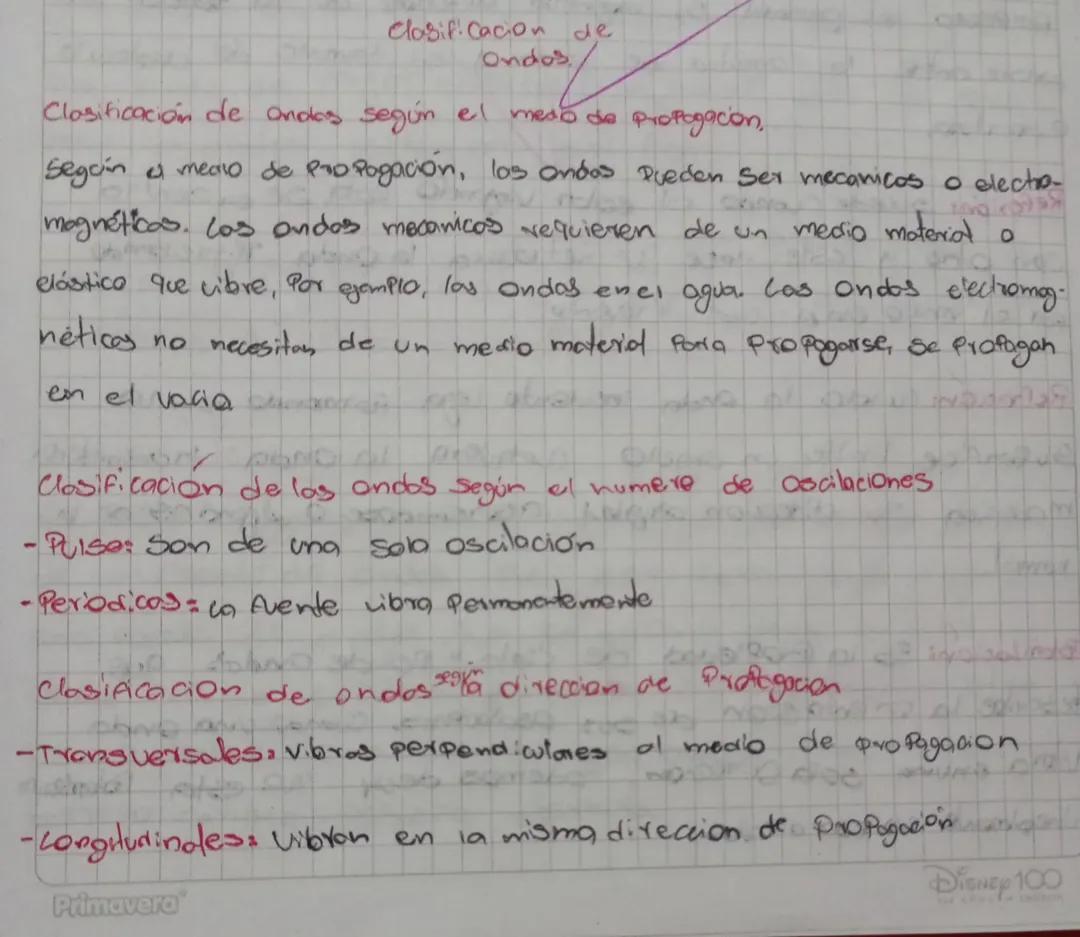 Clasificacion de
ondas.
Clasificación de ondas según el medio de propagación.
según el medio de propagación, las ondas pueden ser mecanicas o electro-
magnéticas. Las ondas mecanicas requieren de un medio material o
elástico que vibre, por ejemplo, las ondas en el agua. Las ondas electromag-
néticas no necesitan de un medio material para propagarse, se propagan
en el vacia
Clasificación de las ondas según el numero de oscilaciones
- Pulso: Son de una sola oscilación
- Periodicas: la fuente vibra permanentemente
Clasificacion de ondas según la direccion de Propagacion
- Transversales: vibras perpendiculares al medio de propagacion
- Longitudinales: Vibran en la misma direccion de propagación
Primavera
Disney 100